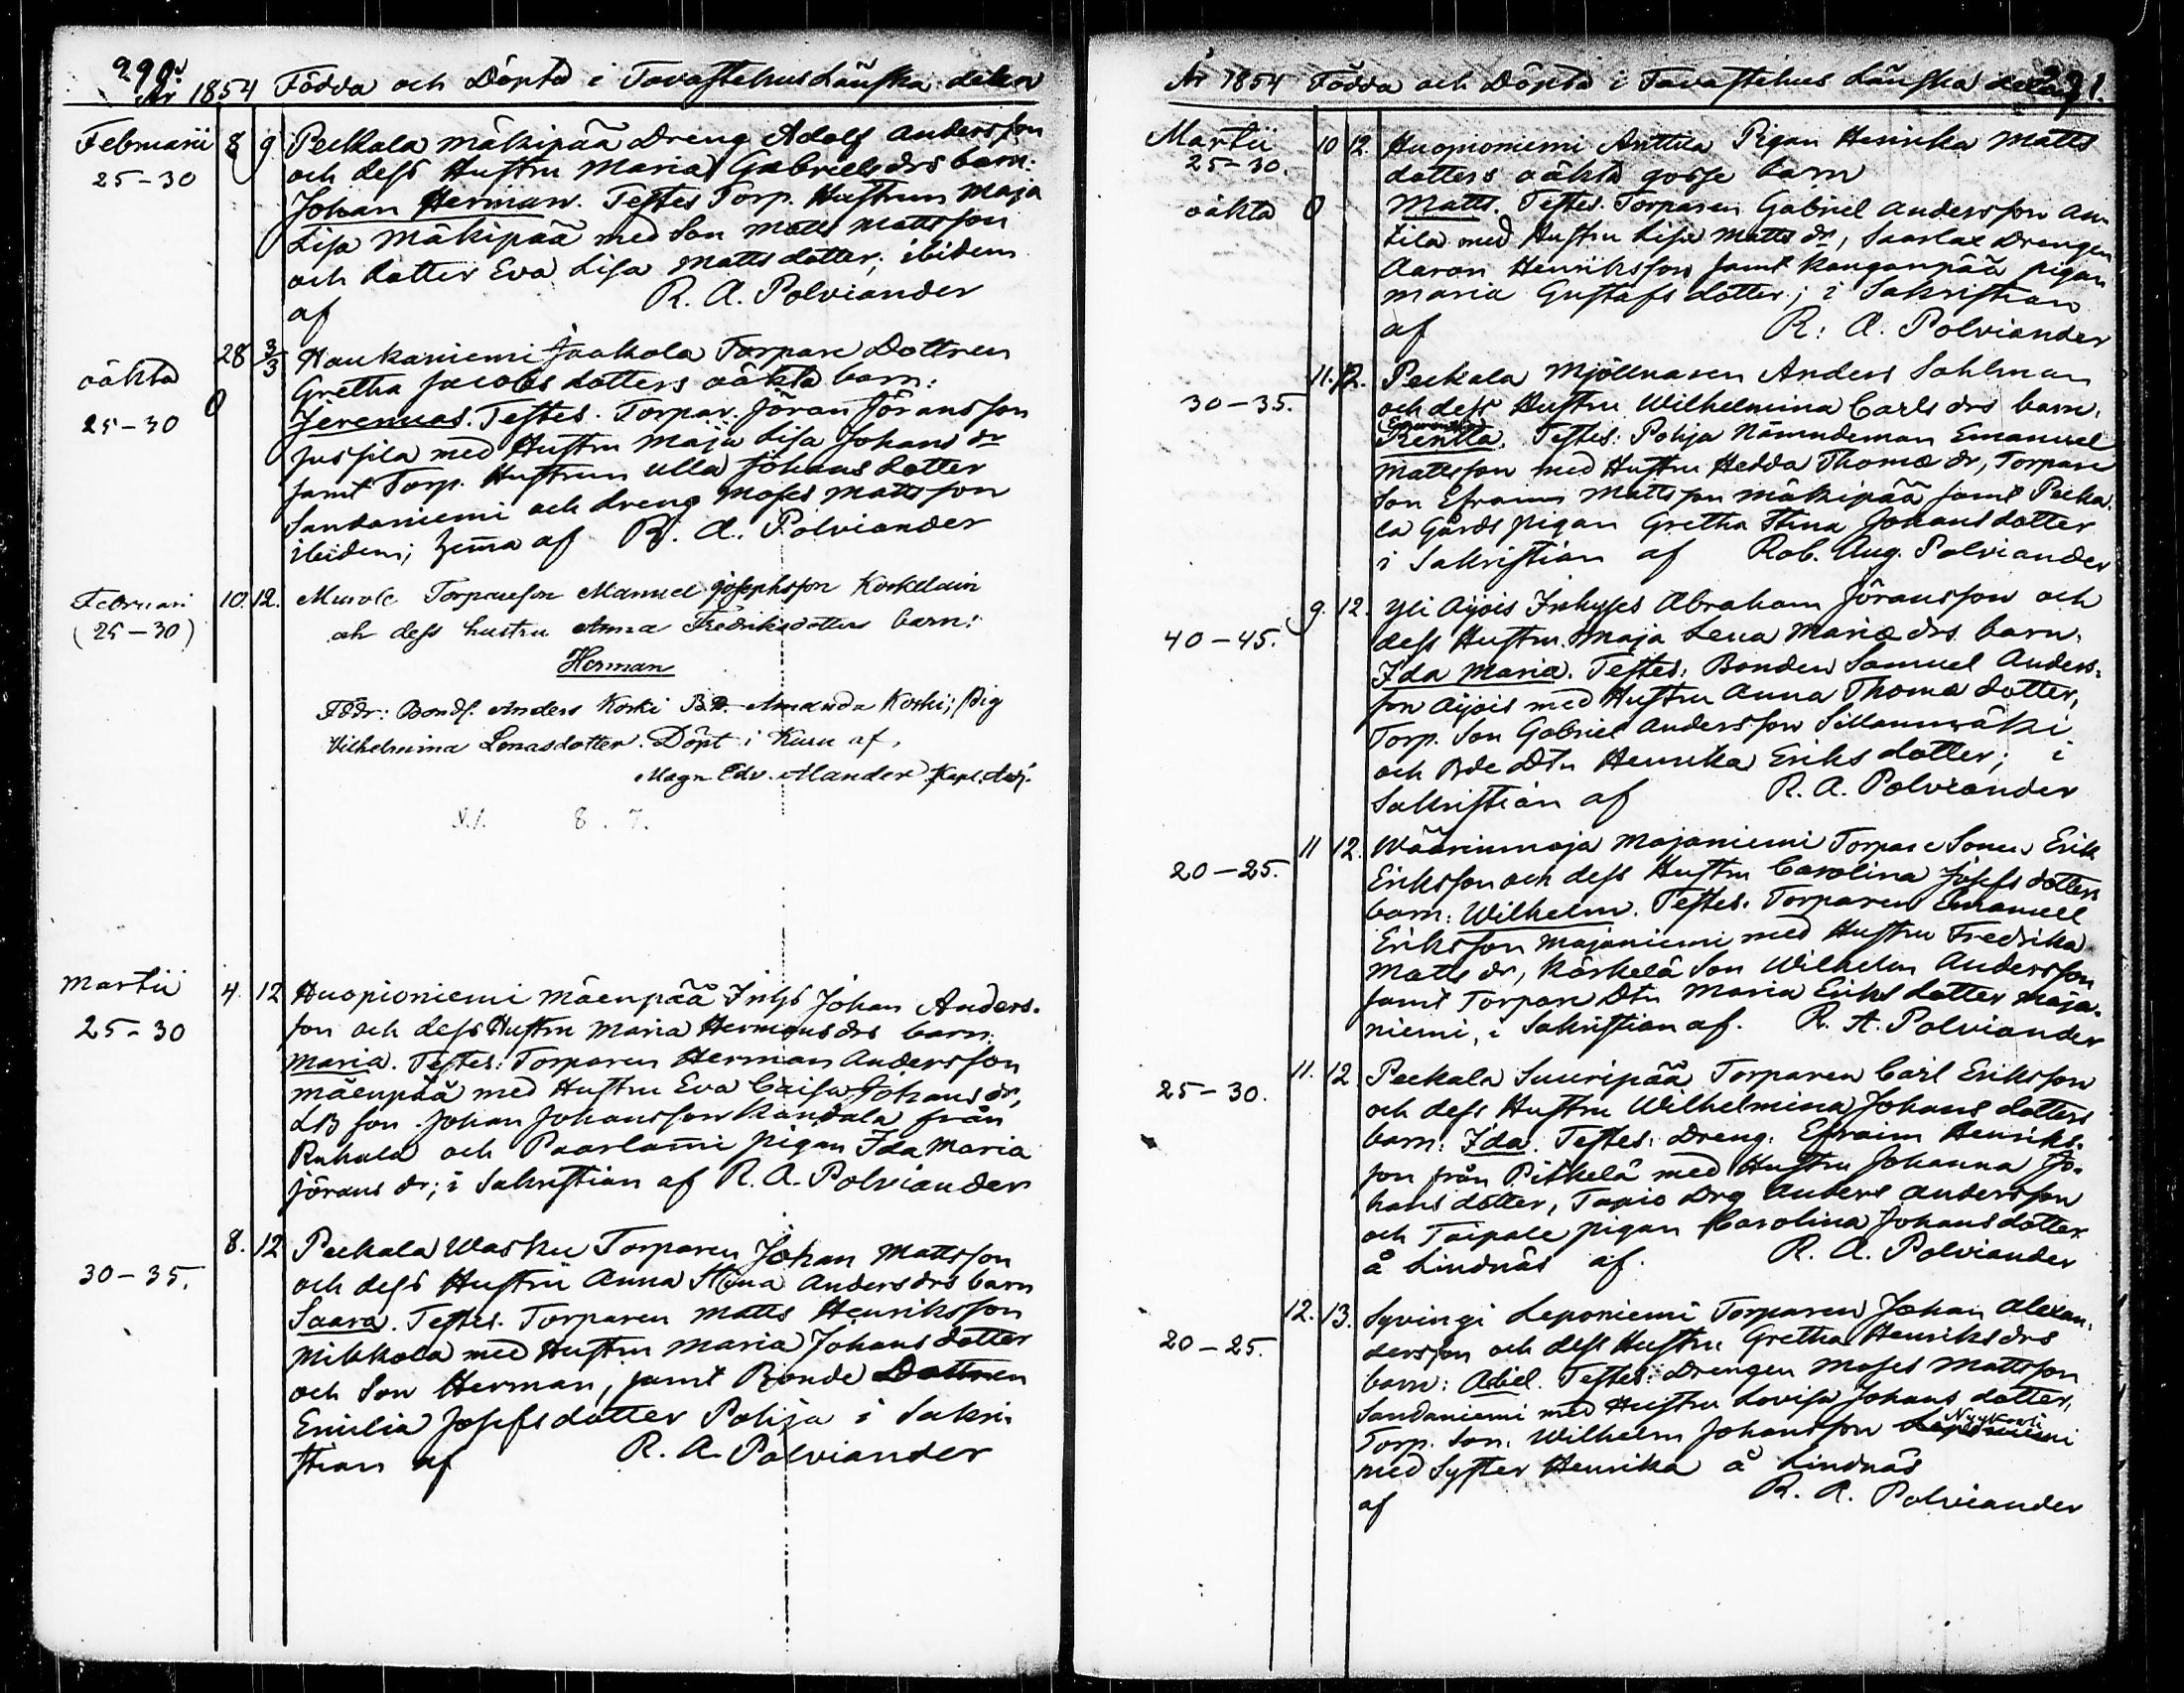 290.
År 1854 Födda och Döpta i Tavastehus Länska delen
Februarii 8 9. Peckala Mäkipää Dreng Adolf Andersson
25-30 och dess Hustru Maria Gabrielsdrs barn:
Johan Herman. Testes Torp. Hustrun Maja
Lisa Mäkipää med Son Matts Mattsson
och dotter Eva Lisa Mattsdotter; ibidem
af R. A. Polviander
28 3/3 Haukaniemi Jaakola Torpare Dottren
oäkta Gretha Jacobsdotters oäkta barn:
25-30 Jeremias. Testes. Torpar. Jöran Jöransson
Jussila med Hustru Maja Lisa Johans dr
samt Torp. Hustrun Ulla Johansdotter
Sandaniemi och dreng Moses Mattsson
ibidem; hema af R. A. Polviander
Februari 10. 12. Murole Torpareson Manuel Josephsson Koskelain
(25-30) och dess hustru Anna Fredriksdotters barn:
Herman
Fddr: Bonds. Anders Koski B.D. Amanda Koski; Pig
Vilhelmina Lenasdotter. Döpt i Kuru af,
Magn. Edv. Alander Kapl. Adj.
8. 7.
Martii 4. 12 Huopioniemi Mäenpää Inhys Johan Anders-
25-30 son och dess Hustru Maria Hermansdrs barn:
Maria. Testes: Torparen Herman Andersson
Mäenpää med Hustru Eva Caisa Johans dr,
LB son Johan Johansson Kandala från
Ruhala och Paarlami pigan Ida Maria
Jörans dr; i Sakristian af R. A. Polviander
8. 12 Peckala Wasku Torparen Johan Mattsson
30-35. och dess Hustru Anna Stina Andersdrs barn
Saara. Testes. Torparen Matts Henriksson
Mikkola med Hustru Maria Johansdotter
och Son Herman, samt Bonde Dottren
Emilia Josefsdotter Pohja i Sakri-
stian af R. A. Polviander
År 1854 Födda och Döpta i Tavastehus Länska delen 291.
Martii 10 12. Huopioniemi Anttila Pigan Henrika Matts
25-30. dotters oäkta gosse barn
oäkta Matts. Testes. Torparen Gabriel Andersson An-
tila med Hustru Lisa Matts dr, Saarlax Drengen
Aaron Henriksson samt Kanganpää pigan
Maria Gustafsdotter; i Sakristian
af R. A. Polviander
11. 12. Peckala Mjölnaren Anders Sahlman
30-35. och dess Hustru Wilhelmina Carlsdrs barn.
Testes: Pohja Nämndeman Emanuel
Mattsson med Hustru Hedda Thomæ dr, Torpare
Son Efraim Mattsson Mäkipää samt Pecka-
la Gårds pigan Gretha Stina Johansdotter
i Sakristian af Rob. Aug. Polviander
9. 12. Yli Aijois Inhyses Abraham Jöransson och
40-45. dess Hustru Maja Lena Mariæ drs barn.
Ida Maria. Testes: Bonden Samuel Anders-
son Aijois med Hustru Anna Thomæ dotter,
Torp. Son Gabriel Andersson Sillanmäki
och Bde Dtr Henrika Eriksdotter; i
Sakristian af R. A. Polviander
11 12. Wäärinmaja Majaniemi Torpare Sonen Erik
20-25. Eriksson och dess Hustru Carolina Josefsdotters
barn: Wilhelm. Testes. Torparen Emanuel
Eriksson Majaniemi med Hustru Fredrika
Matts dr, Kärkelä Son Wilhelm Andersson
samt Torpare Dtr Maria Eriksdotter Maja-
niemi, i Sakristian af. R. A. Polviander
11. 12 Peckala Suuripää Torparen Carl Eriksson
25-30. och dess Hustru Wilhelmina Johansdotters
barn: Ida. Testes: Dreng. Efraim Henriks-
son från Pitkelä med Hustru Johanna Jo-
hansdotter, Tapio Drg Anders Andersson
och Taipale pigan Carolina Johansdotter
å Lindnäs af. R. A. Polviander
12. 13. Syvingi Leponiemi Torparen Johan Alexan-
20-25. dersson och dess Hustru Gretha Henriksdrs
barn: Abiel. Testes: Drengen Moses Mattsson
Sandaniemi med Hustru Lovisa Johansdotter,
Torp. Son. Wilhelm Johansson Leponiemi
med Syster Henrika å Lindnäs
af R. A. Polviander